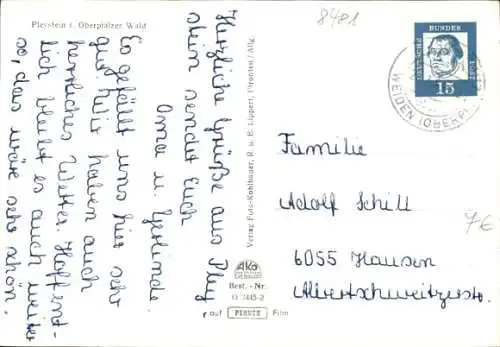 Pleystein i. Oberpfälzer Wald
8481
Herzliche Grüße aus Pley
stein sendet Euch
Oma u. Gerlinde.
Es gefällt uns hier sehr
gut. Wir haben auch
herrliches Wetter. Hoffent-
lich bleibt es auch weiter
so, das wäre sehr schön.
Verlag Foto-Kohlbauer, R. u. E. Lippert, Pfronten/Allg.
AKO
Best.-Nr.
O 7445-2
auf PERUTZ Film
DEUTSCHE BUNDESPOST
15
WEIDEN (OBERPF
Familie
Adolf Schill
6055 Hausen
Albertschweitzerstr.
7€